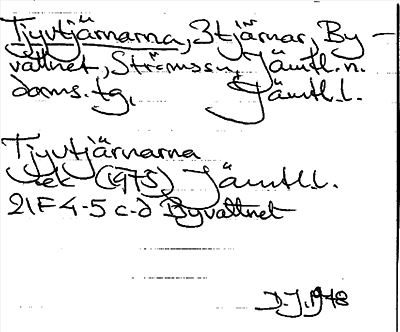 Tjyvtjärnarna, 3 tjärnar, By-
vattnet, Strömssn, Jämtl. n.
doms. tg, Jämtl. l.
Tjyvtjärnarna
ek (1975) Jämtl l.
21F 4-5 c-d Byvattnet
D.J. 1978